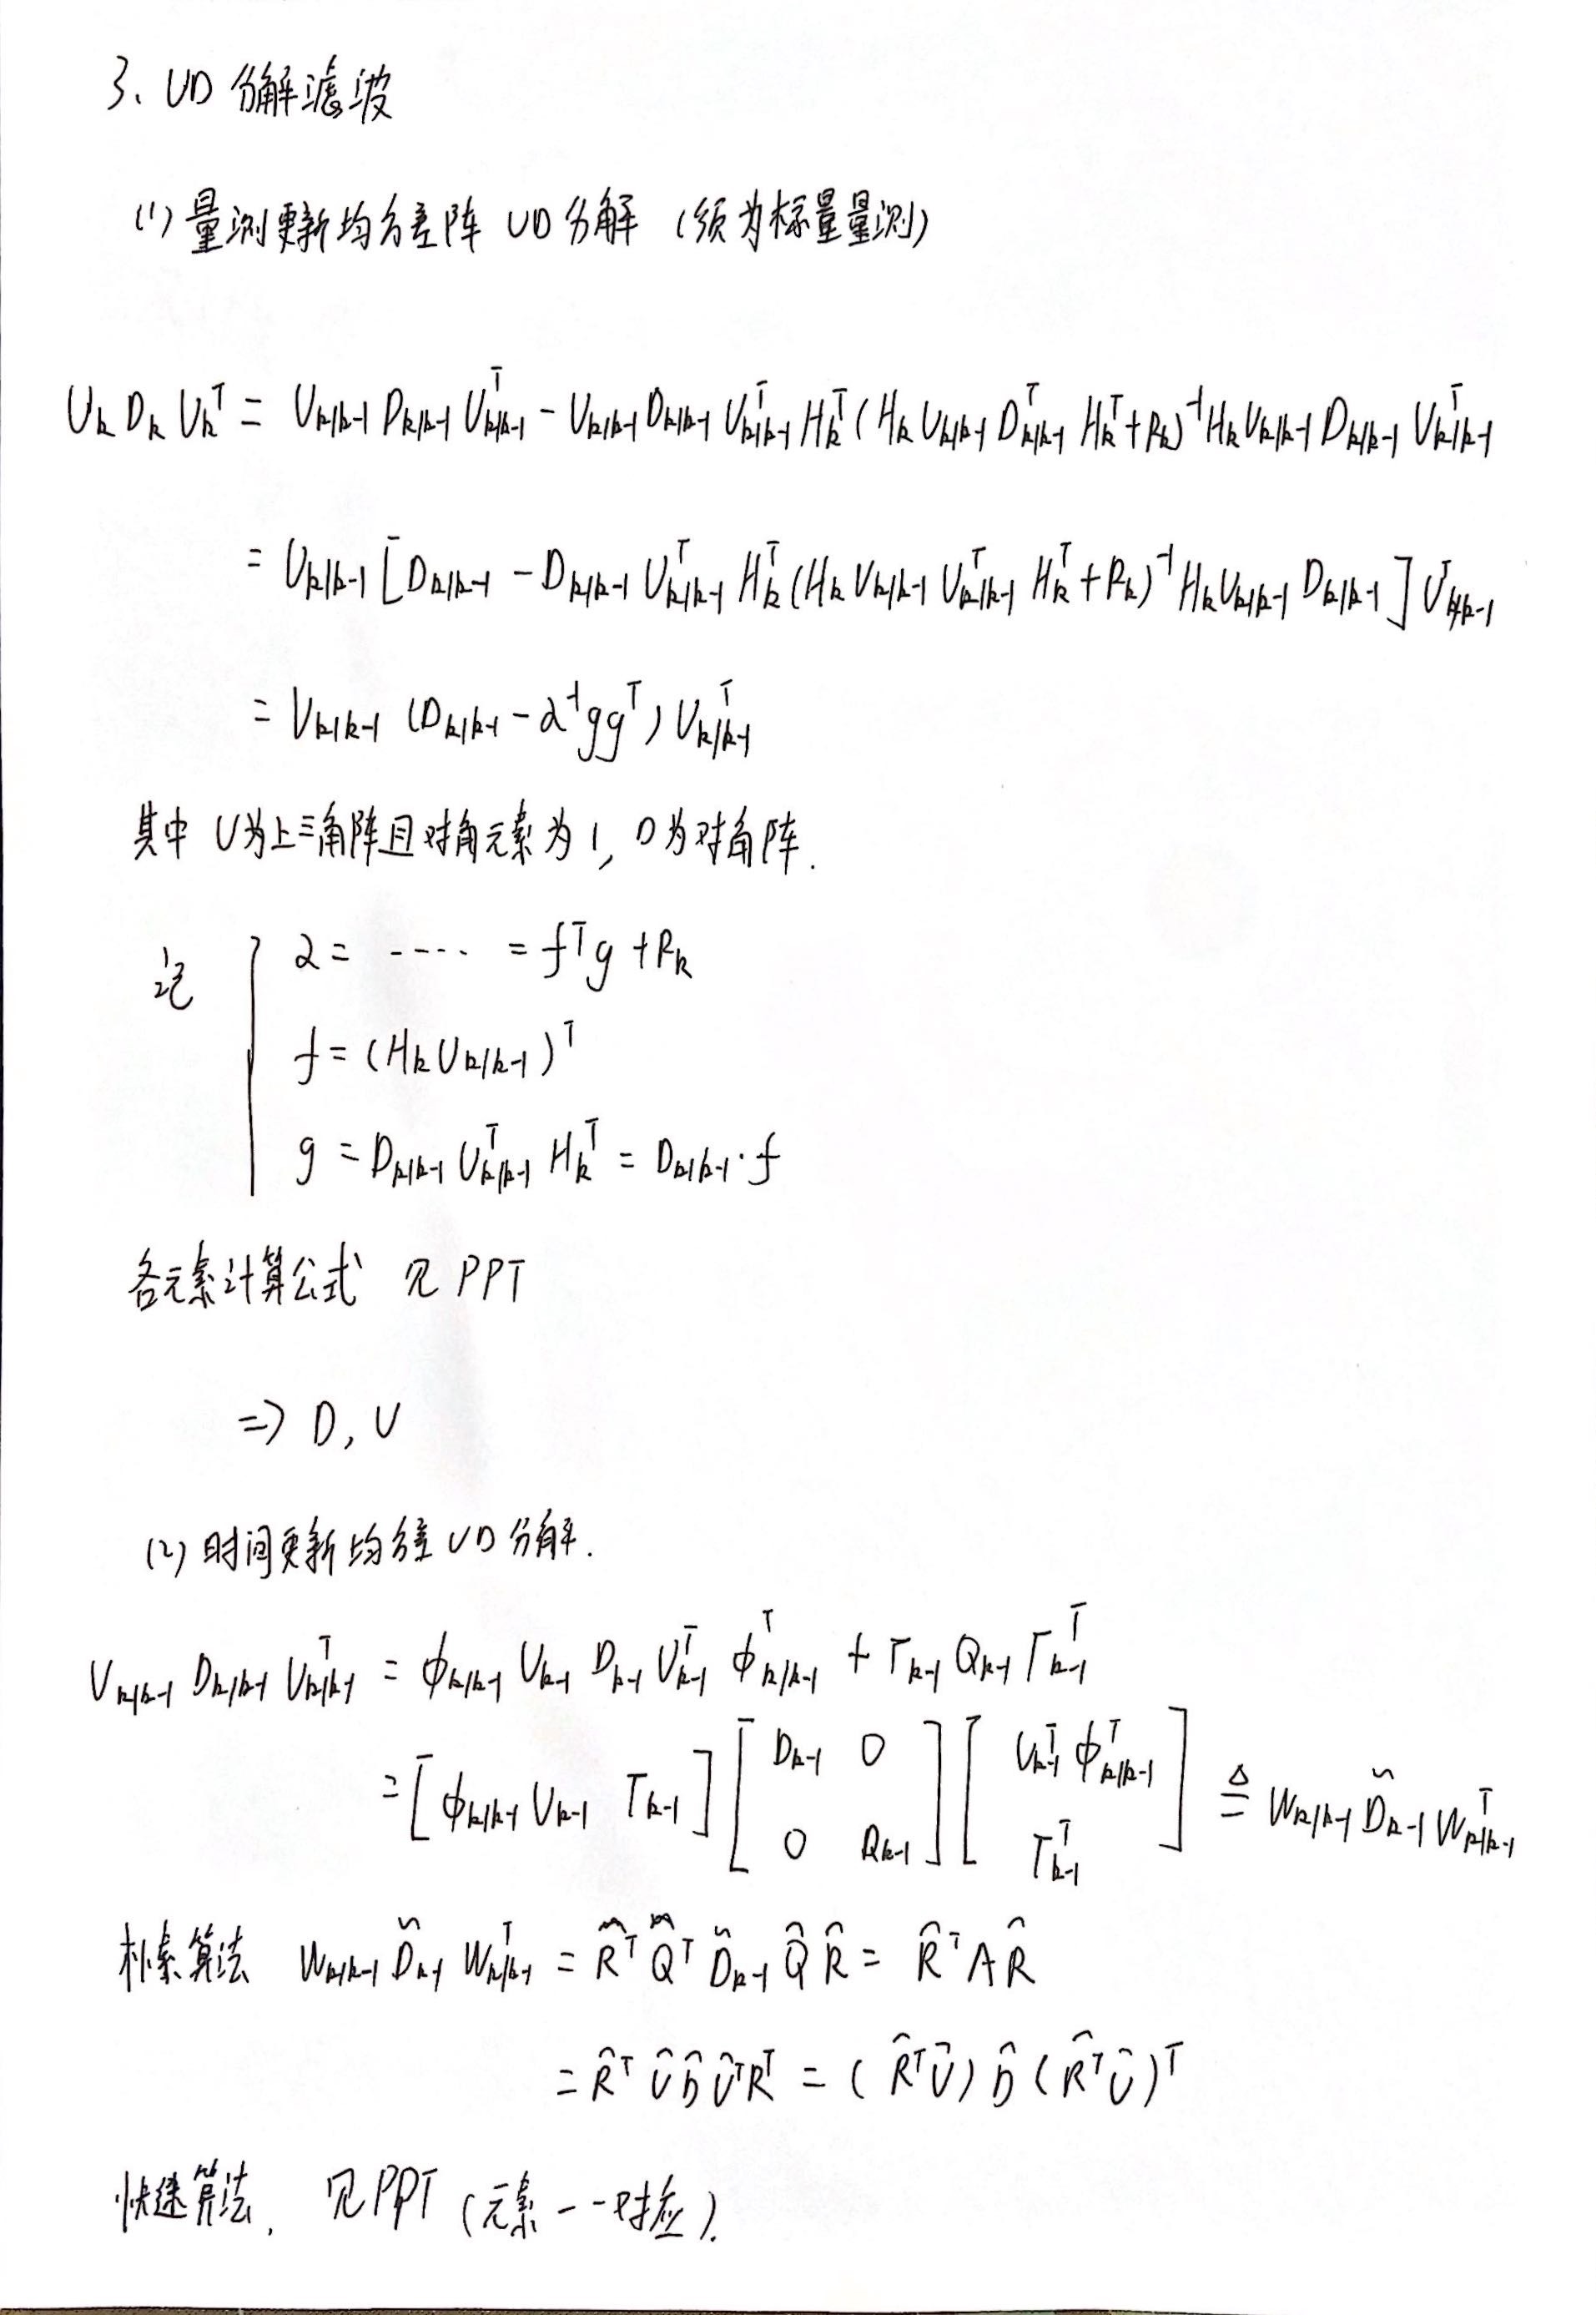 3、UD 分解滤波
(1) 量测更新均方差阵 UD 分解 (须为标量量测)
U_k D_k U_k^T = U_{k|k-1} D_{k|k-1} U_{k|k-1}^T - U_{k|k-1} D_{k|k-1} U_{k|k-1}^T H_k^T (H_k U_{k|k-1} D_{k|k-1}^T H_k^T + R_k)^{-1} H_k U_{k|k-1} D_{k|k-1} U_{k|k-1}^T
= U_{k|k-1} [D_{k|k-1} - D_{k|k-1} U_{k|k-1}^T H_k^T (H_k U_{k|k-1} U_{k|k-1}^T H_k^T + R_k)^{-1} H_k U_{k|k-1} D_{k|k-1}] U_{k|k-1}^T
= U_{k|k-1} (D_{k|k-1} - α^{-1} g g^T) U_{k|k-1}^T
其中 U为上三角阵且对角元素为1, D为对角阵.
记 { α = ····· = f^T g + R_k
f = (H_k U_{k|k-1})^T
g = D_{k|k-1} U_{k|k-1}^T H_k^T = D_{k|k-1} · f
各元素计算公式 见 PPT
=> D, U
(2) 时间更新均方差 UD 分解.
U_{k|k-1} D_{k|k-1} U_{k|k-1}^T = ϕ_{k|k-1} U_{k-1} D_{k-1} U_{k-1}^T ϕ_{k|k-1}^T + Γ_{k-1} Q_{k-1} Γ_{k-1}^T
= [ϕ_{k|k-1} U_{k-1} Γ_{k-1}] [D_{k-1} 0; 0 Q_{k-1}] [U_{k-1}^T ϕ_{k|k-1}^T; Γ_{k-1}^T] ≜ W_{k|k-1} D̃_{k-1} W_{k|k-1}^T
朴素算法 W_{k|k-1} D̃_{k-1} W_{k|k-1}^T = R̂^T Q̂^T D̃_{k-1} Q̂ R̂ = R̂^T A R̂
= R̂^T Û D̂ Û^T R^T = (R̂^T Û) D̂ (R̂^T Û)^T
快速算法. 见PPT (元素一一对应).